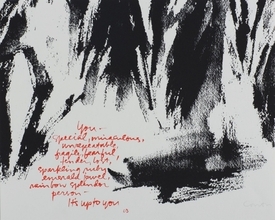 You -
special, miraculous,
unrepeatable,
fragile, fearful,
tender, lost,
sparkling ruby
emerald jewel
rainbow splendor
person -
It's up to you